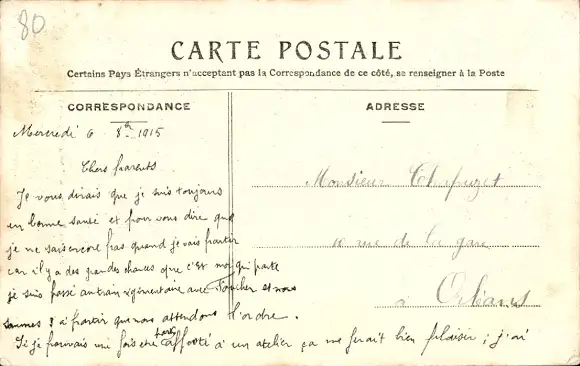 80
CARTE POSTALE
Certains Pays Étrangers n'acceptant pas la Correspondance de ce côté, se renseigner à la Poste
CORRESPONDANCE
Mercredi 6 8bre 1915
Chers parents
Je vous dirais que je suis toujours
en bonne santé et pour vous dire que
je ne sais encore pas quand je vais partir
car il y a des grandes chances que c'est moi qui parte
je suis passé au train régimentaire avec Foucher et nous
sommes 8 à partir que nous attendons l'ordre.
Si je pouvais une fois être affecté à un atelier ça me ferait bien plaisir ; j'ai
ADRESSE
Monsieur
rue de la gare
à Orléans